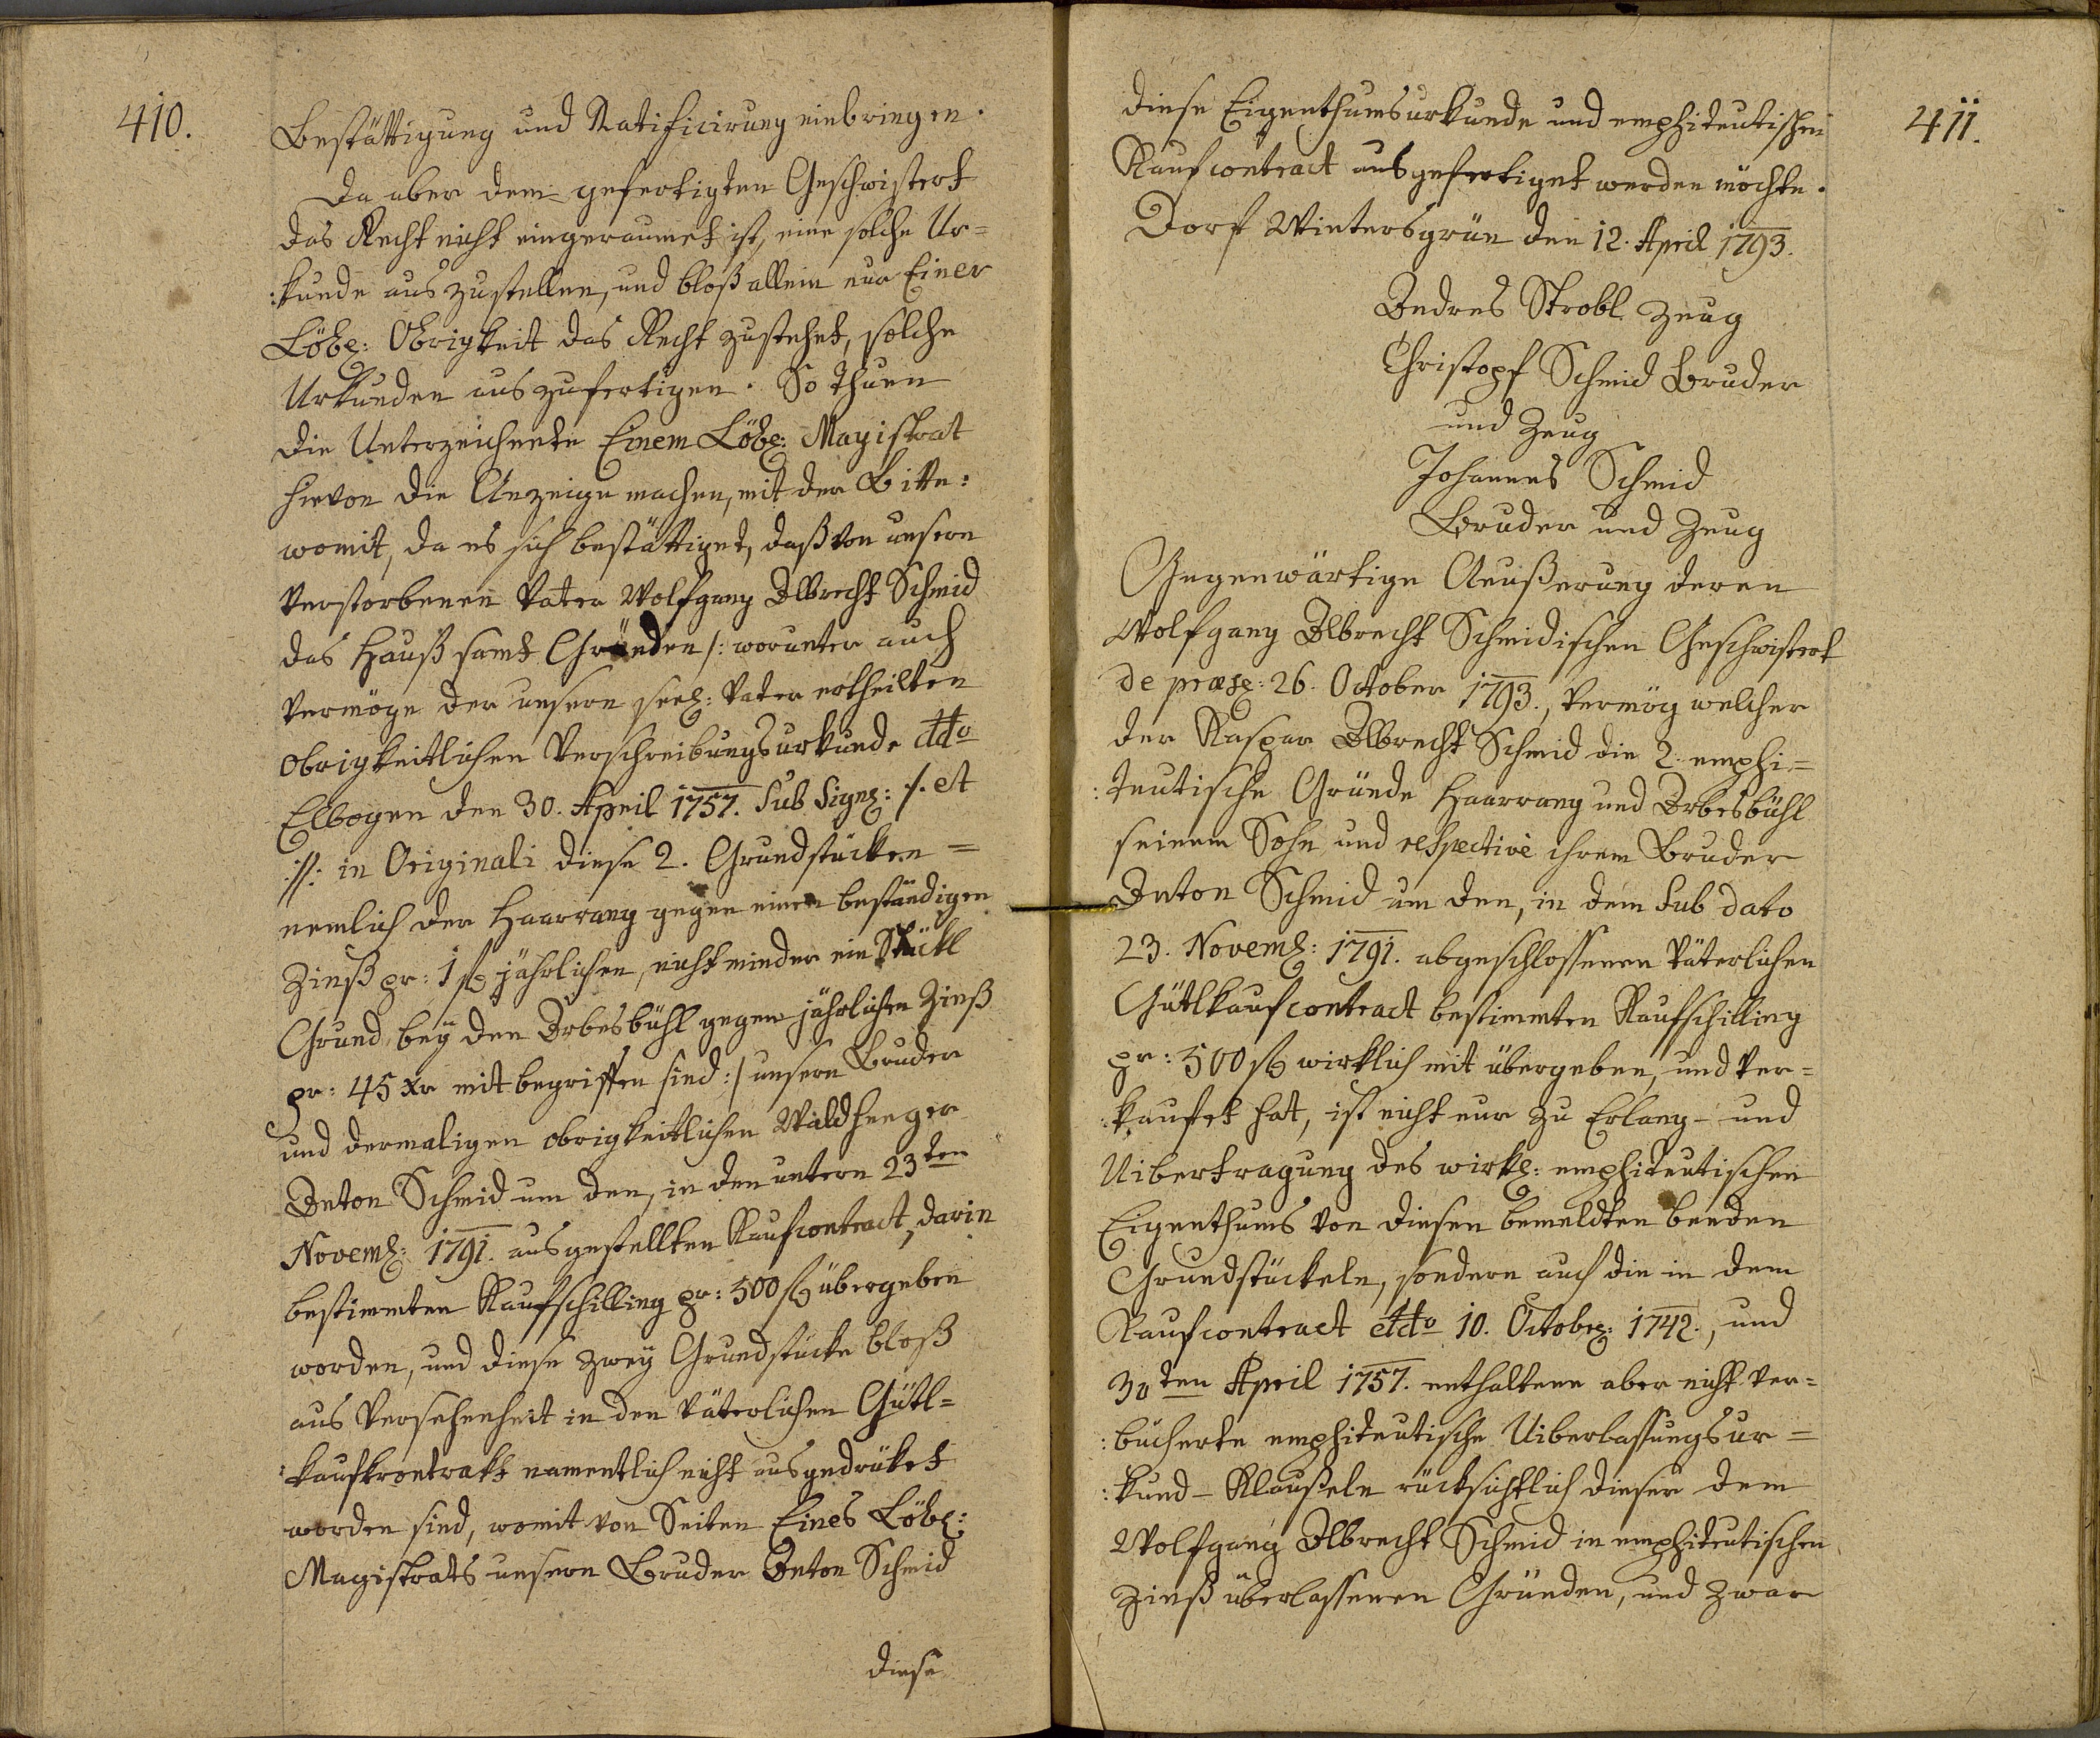 410.
Bestättigung und Ratificirung einbringen.
Da aber dem gefertigten Geschwistert
das Recht nicht eingeraumet ist, eine solche Ur=
:kunde auszustellen, und bloß allein nur Einer
Löbl: Obrigkeit das Recht zustehet, solche
Urkunden auszufertigen. So thuen
die Unterzeichnete Einem Löbl: Magistrat
hievon die Anzeige machen, mit der Bitte:
womit, da es sich bestättiget, daß von unsern
verstorbenen Vater Wolfgang Albrecht Schmid
das Hauß samt Gründen /: worunter auch
vermöge der unsern seel: Vater ertheilten
obrigkeitlichen Verschreibungsurkunde ddto
Elbogen den 30. April 1757. Sub Signl: ·/. et
·//: in Originali diese 2. Grundstücken =
nemlich der Haarrang gegen einen beständigen
Zinß pr: 1 f jährlichen, nicht minder ein Stückl
Grund beÿ den Arbesbühl gegen jährlichen Zinß
pr: 45 xr mitbegriffen sind :/ unsern Bruder
und dermaligen obrigkeitlichen Waldheeger
Anton Schmid um den, in den untern 23ten
Novembl: 1791. ausgestellten Kaufcontract, darin
bestimmten Kaufschilling pr: 500 f übergeben
worden, und diese zweÿ Grundstücke bloß
aus Versehenheit in den väterlichen Gütl=
:kaufkrontrakt namentlich nicht ausgedrüket
worden sind, womit von Seiten Eines Löbl:
Magistrats unsern Bruder Anton Schmid
diese
411.
diese Eigenthumsurkunde und emphiteutischen
Kaufcontract ausgefertiget werden möchte.
Dorf Wintersgrün den 12. April 1793.
Andres Strobl Zeug
Christopf Schmid Bruder
und Zeug
Johannes Schmid
Bruder und Zeug
Gegenwärtige Aeußerung deren
Wolfgang Albrecht Schmidischen Geschwistert
de præsl: 26. October 1793., vermög welcher
der Kaspar Albrecht Schmid die 2. emphi=
:teutische Gründe Haarrang und Arbesbühl
seinem Sohn und respective ihrem Bruder
Anton Schmid um den, in dem sub dato
23. Noveml: 1791. abgeschlossenen väterlichen
Gütlkaufcontract bestimmten Kaufschilling
pr: 500 f wirklich mit übergeben, und ver=
:kaufet hat, ist nicht nur zu Erlang- und
Uibertragung des wirkl: emphiteutischen
Eigenthums von diesen bemeldten beeden
Grundstückeln, sondern auch die in dem
Kaufcontract ddto 10. Octobrl: 1742., und
30ten April 1757. enthaltene aber nicht ver=
:bücherte emphiteutische Uiberlassungsur=
:kund- Klaußeln rücksichtlich dieser dem
Wolfgang Albrecht Schmid in emphiteutischen
Zinß überlassenen Gründen, und zwar